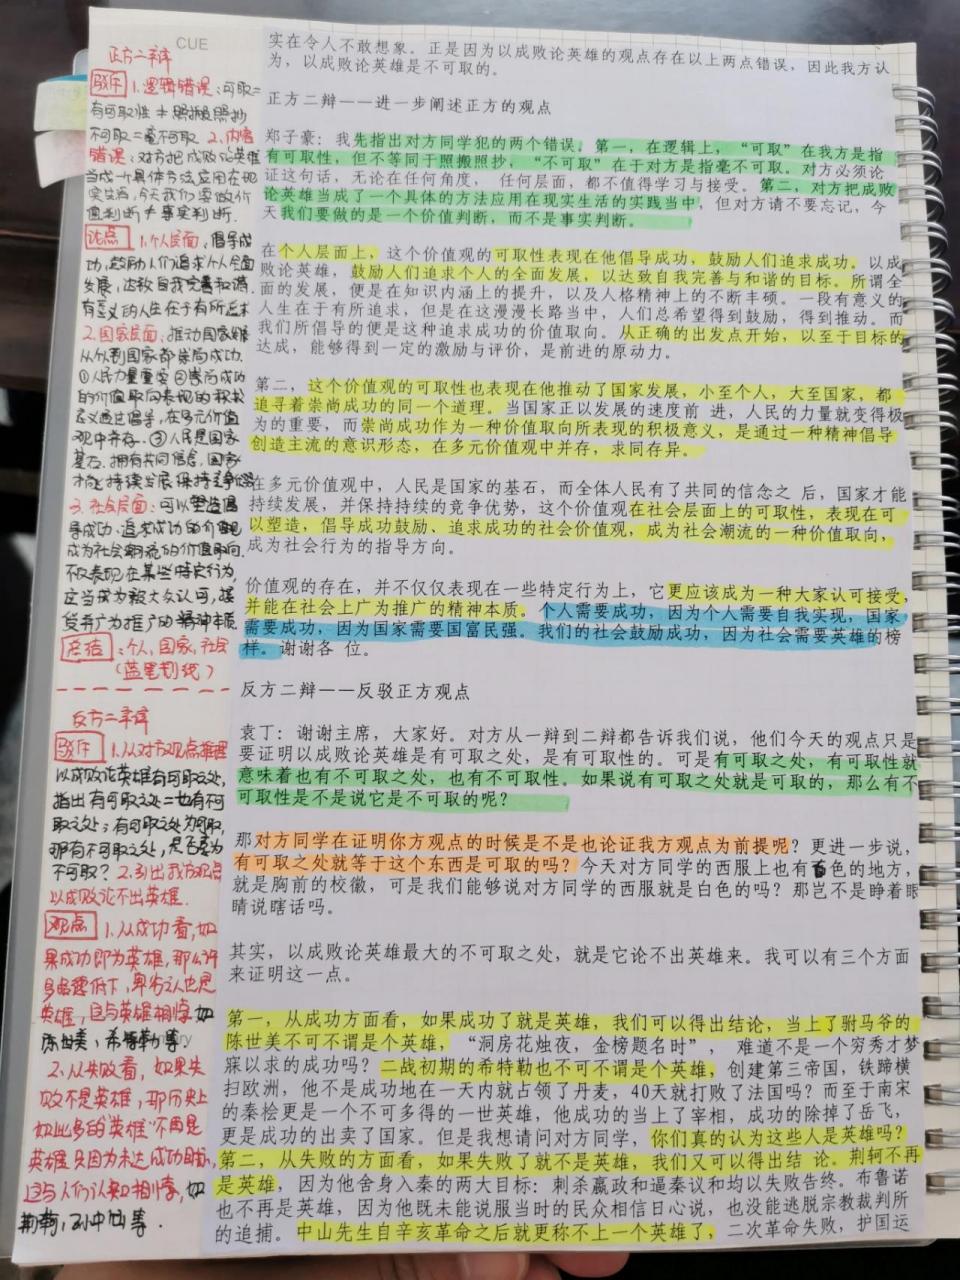 CUE
正方二辩
驳斥 1.逻辑错误:可取=
有可取性≠照搬照抄
不可取=毫不可取 2.内容
错误:对方把成败论英雄
当成一个具体方法应用在现
实生活,今天我们要做价
值判断≠事实判断.
论点 1.个人层面,倡导成
功,鼓励人们追求个人全面
发展,达致自我完善和谐.
有意义的人生在于有所追求
2.国家层面:推动国家发展
从个人到国家都崇尚成功.
①人民力量重要 ②崇尚成功
的价值取向表现的积极
意义通过倡导,在多元价值
观中并存.③人民是国家
基石.拥有共同信念,国家
才能持续发展保持竞争优势
3.社会层面:可以塑造倡
导成功.追求成功的价值观
成为社会潮流的价值取向.
不仅表现在某些特定行为,
应当成为被大众认可,接
受并广为推广的精神本质
总结:个人,国家,社会
(蓝笔划线)
反方二辩
驳斥 1.从对方观点推理
以成败论英雄有可取之处,
指出有可取之处=也有不可
取之处;有可取之处为可取,
那有不可取之处,是否要为
不可取?2.引出我方观点
以成败论不出英雄.
观点 1.从成功看,如
果成功即为英雄,那么许
多品德低下,卑劣之人也是
英雄,这与英雄相悖.如
陈世美,希特勒等
2.从失败看,如果失
败不是英雄,那历史上
如此多的"英雄"不再是
英雄 只因为未达成功目的,
这与人们认知相悖,如
荆轲,孙中山等.
实在令人不敢想象。正是因为以成败论英雄的观点存在以上两点错误，因此我方认
为，以成败论英雄是不可取的。
正方二辩——进一步阐述正方的观点
郑子豪：我先指出对方同学犯的两个错误。第一，在逻辑上，“可取”在我方是指
有可取性，但不等同于照搬照抄，“不可取”在于对方是指毫不可取。对方必须论
证这句话，无论在任何角度， 任何层面，都不值得学习与接受。第二，对方把成败
论英雄当成了一个具体的方法应用在现实生活的实践当中，但对方请不要忘记，今
天我们要做的是一个价值判断，而不是事实判断。
在个人层面上，这个价值观的可取性表现在他倡导成功，鼓励人们追求成功。以成
败论英雄，鼓励人们追求个人的全面发展，以达致自我完善与和谐的目标。所谓全
面的发展，便是在知识内涵上的提升，以及人格精神上的不断丰硕。一段有意义的
人生在于有所追求，但是在这漫漫长路当中，人们总希望得到鼓励，得到推动。而
我们所倡导的便是这种追求成功的价值取向。从正确的出发点开始，以至于目标的
达成，能够得到一定的激励与评价，是前进的原动力。
第二，这个价值观的可取性也表现在他推动了国家发展，小至个人，大至国家，都
追寻着崇尚成功的同一个道理。当国家正以发展的速度前 进，人民的力量就变得极
为的重要，而崇尚成功作为一种价值取向所表现的积极意义，是通过一种精神倡导
创造主流的意识形态，在多元价值观中并存，求同存异。
在多元价值观中，人民是国家的基石，而全体人民有了共同的信念之 后，国家才能
持续发展，并保持持续的竞争优势，这个价值观在社会层面上的可取性，表现在可
以塑造，倡导成功鼓励、追求成功的社会价值观，成为社会潮流的一种价值取向，
成为社会行为的指导方向。
价值观的存在，并不仅仅表现在一些特定行为上，它更应该成为一种大家认可接受，
并能在社会上广为推广的精神本质。个人需要成功，因为个人需要自我实现，国家
需要成功，因为国家需要国富民强。我们的社会鼓励成功，因为社会需要英雄的榜
样。谢谢各 位。
反方二辩——反驳正方观点
袁丁：谢谢主席，大家好。对方从一辩到二辩都告诉我们说，他们今天的观点只是
要证明以成败论英雄是有可取之处，是有可取性的。可是有可取之处，有可取性就
意味着也有不可取之处，也有不可取性。如果说有可取之处就是可取的，那么有不
可取性是不是说它是不可取的呢？
那对方同学在证明你方观点的时候是不是也论证我方观点为前提呢？更进一步说，
有可取之处就等于这个东西是可取的吗？今天对方同学的西服上也有白色的地方，
就是胸前的校徽，可是我们能够说对方同学的西服就是白色的吗？那岂不是睁着眼
睛说瞎话吗。
其实，以成败论英雄最大的不可取之处，就是它论不出英雄来。我可以有三个方面
来证明这一点。
第一，从成功方面看，如果成功了就是英雄，我们可以得出结论，当上了驸马爷的
陈世美不可不谓是个英雄，“洞房花烛夜，金榜题名时”， 难道不是一个穷秀才梦
寐以求的成功吗？二战初期的希特勒也不可不谓是个英雄，创建第三帝国，铁蹄横
扫欧洲，他不是成功地在一天内就占领了丹麦，40天就打败了法国吗？而至于南宋
的秦桧更是一个不可多得的一世英雄，他成功的当上了宰相，成功的除掉了岳飞，
更是成功的出卖了国家。但是我想请问对方同学，你们真的认为这些人是英雄吗？
第二，从失败的方面看，如果失败了就不是英雄，我们又可以得出结 论。荆轲不再
是英雄，因为他舍身入秦的两大目标：刺杀嬴政和逼秦议和均以失败告终。布鲁诺
也不再是英雄，因为他既未能说服当时的民众相信日心说，也没能逃脱宗教裁判所
的追捕。中山先生自辛亥革命之后就更称不上一个英雄了，二次革命失败，护国运